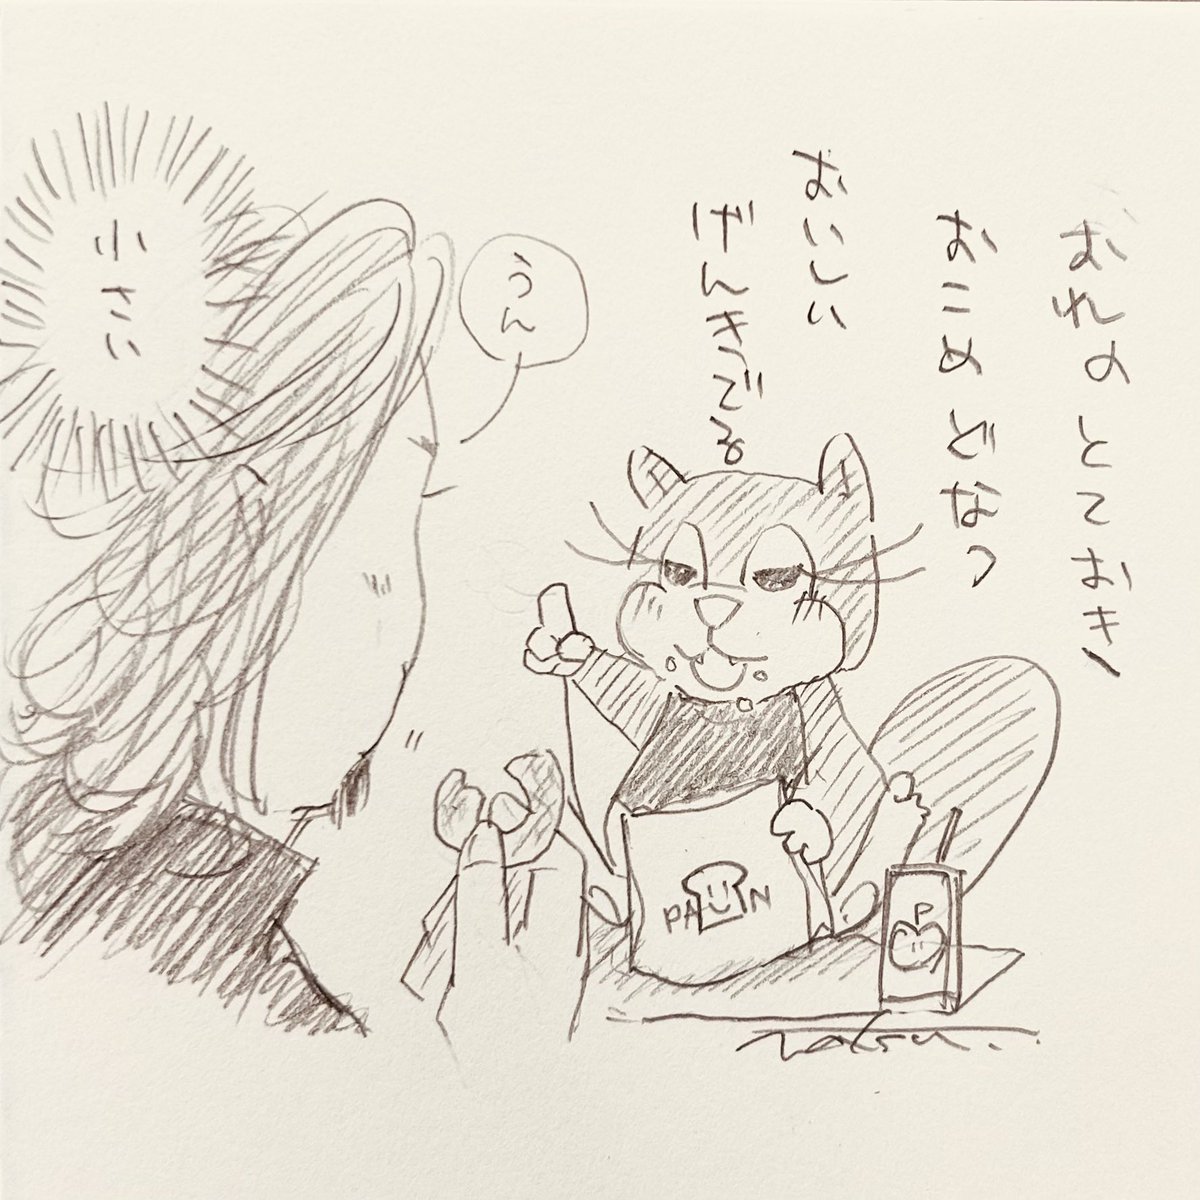 おれのとておき
おこめどなつ
おいしい
げんきでる
うん
小さい
PAN
P